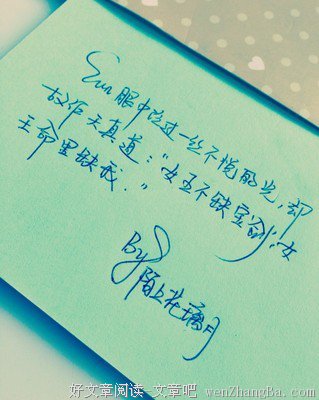 Eva眼中泛过一丝不悦的光,却
故作天真道:"女王不缺宝剑,女
王命里缺我."
By 陌上花璃月
好文章阅读-文章吧 wenZhangBa.com